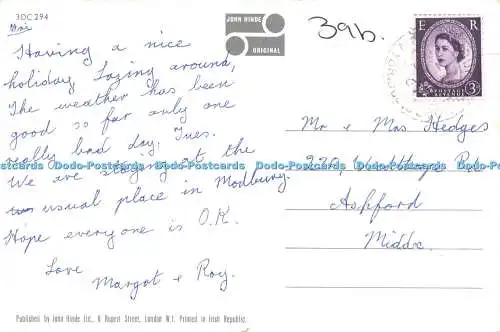 3DC 294
JOHN HINDE
ORIGINAL
39b.
E R
POSTAGE
REVENUE
3D
Having a nice
holiday. Lazing around,
The weather has been
good so far only one
really bad day, Tues.
We are staying at the
usual place in Modbury.
Hope everyone is O.K.
Love
Margot & Roy.
Mr & Mrs Hedges
Ashford
Middx.
Dodo-Postcards Dodo-Postcards Dodo-Postcards Dodo-Postcards Dodo-Postcards
Published by John Hinde Ltd., 6 Rupert Street, London W.1. Printed in Irish Republic.